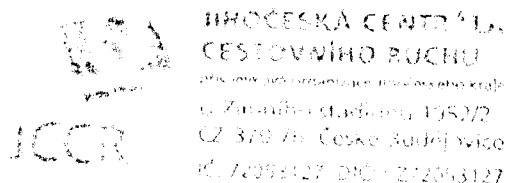 JIHOČESKÁ CENTRÁLA
CESTOVNÍHO RUCHU
příspěvková organizace Jihočeského kraje
u Zimního stadionu 1952/2
CZ 370 76 České Budějovice
IČ: 72053127 DIČ:
JCCR